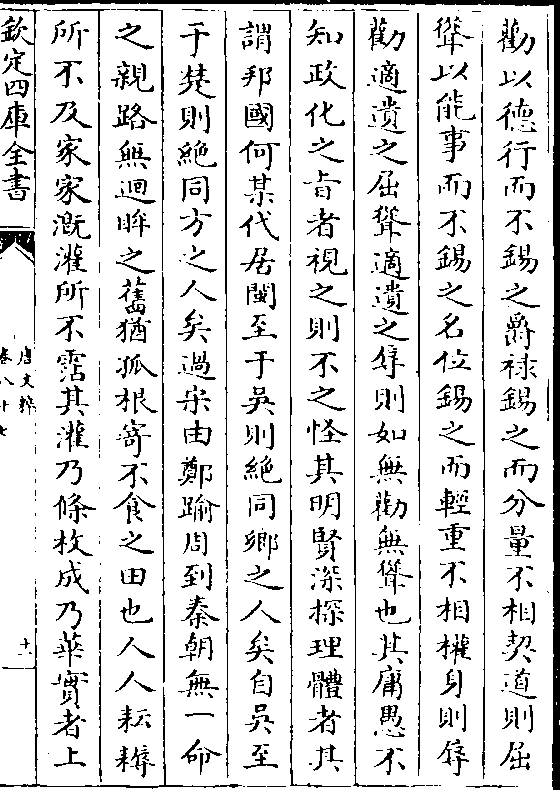 勸以德行而不錫之爵禄錫之而分量不相契道則屈
聳以能事而不錫之名位錫之而輕重不相權身則辱
勸適遺之屈聳適遺之辱則如無勸無聳也其庸愚不
知政化之㫖者視之則不之怪其明賢深探理體者其
謂邦國何某代居閩至于吳則絶同鄉之人矣自吳至
于楚則絶同方之人矣過宋由鄭踰周到秦朝無一命
之親路無迴眸之舊猶孤根寄不食之田也人人耘耨
所不及家家溉灌所不霑其灌乃條枚成乃華實者上
欽定四庫全書
唐文粹
卷八十七
十一